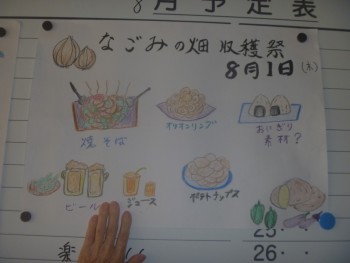 8月予定表
なごみの畑 収穫祭
8月1日(木)
焼そば
オニオンリング
おにぎり
素材?
ビール
ジュース
ポテトチップス
25・・
楽
26・・